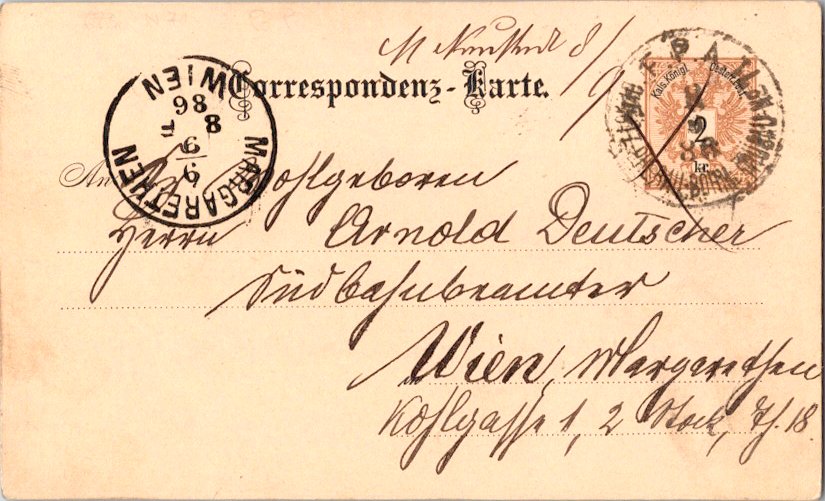 M Neustadt 8/9
Correspondenz-Karte.
Kais. Königl. Oesterr.
2
kr
WIEN
MARGARETHEN
86
8
9
9 F
K.K. FAHRENDES POSTAMT
An Wohlgeboren
Herrn Arnold Deutscher
Südbahnbeamter
Wien, Margarethen
Kohlgasse 1, 2 Stock, Th. 18.